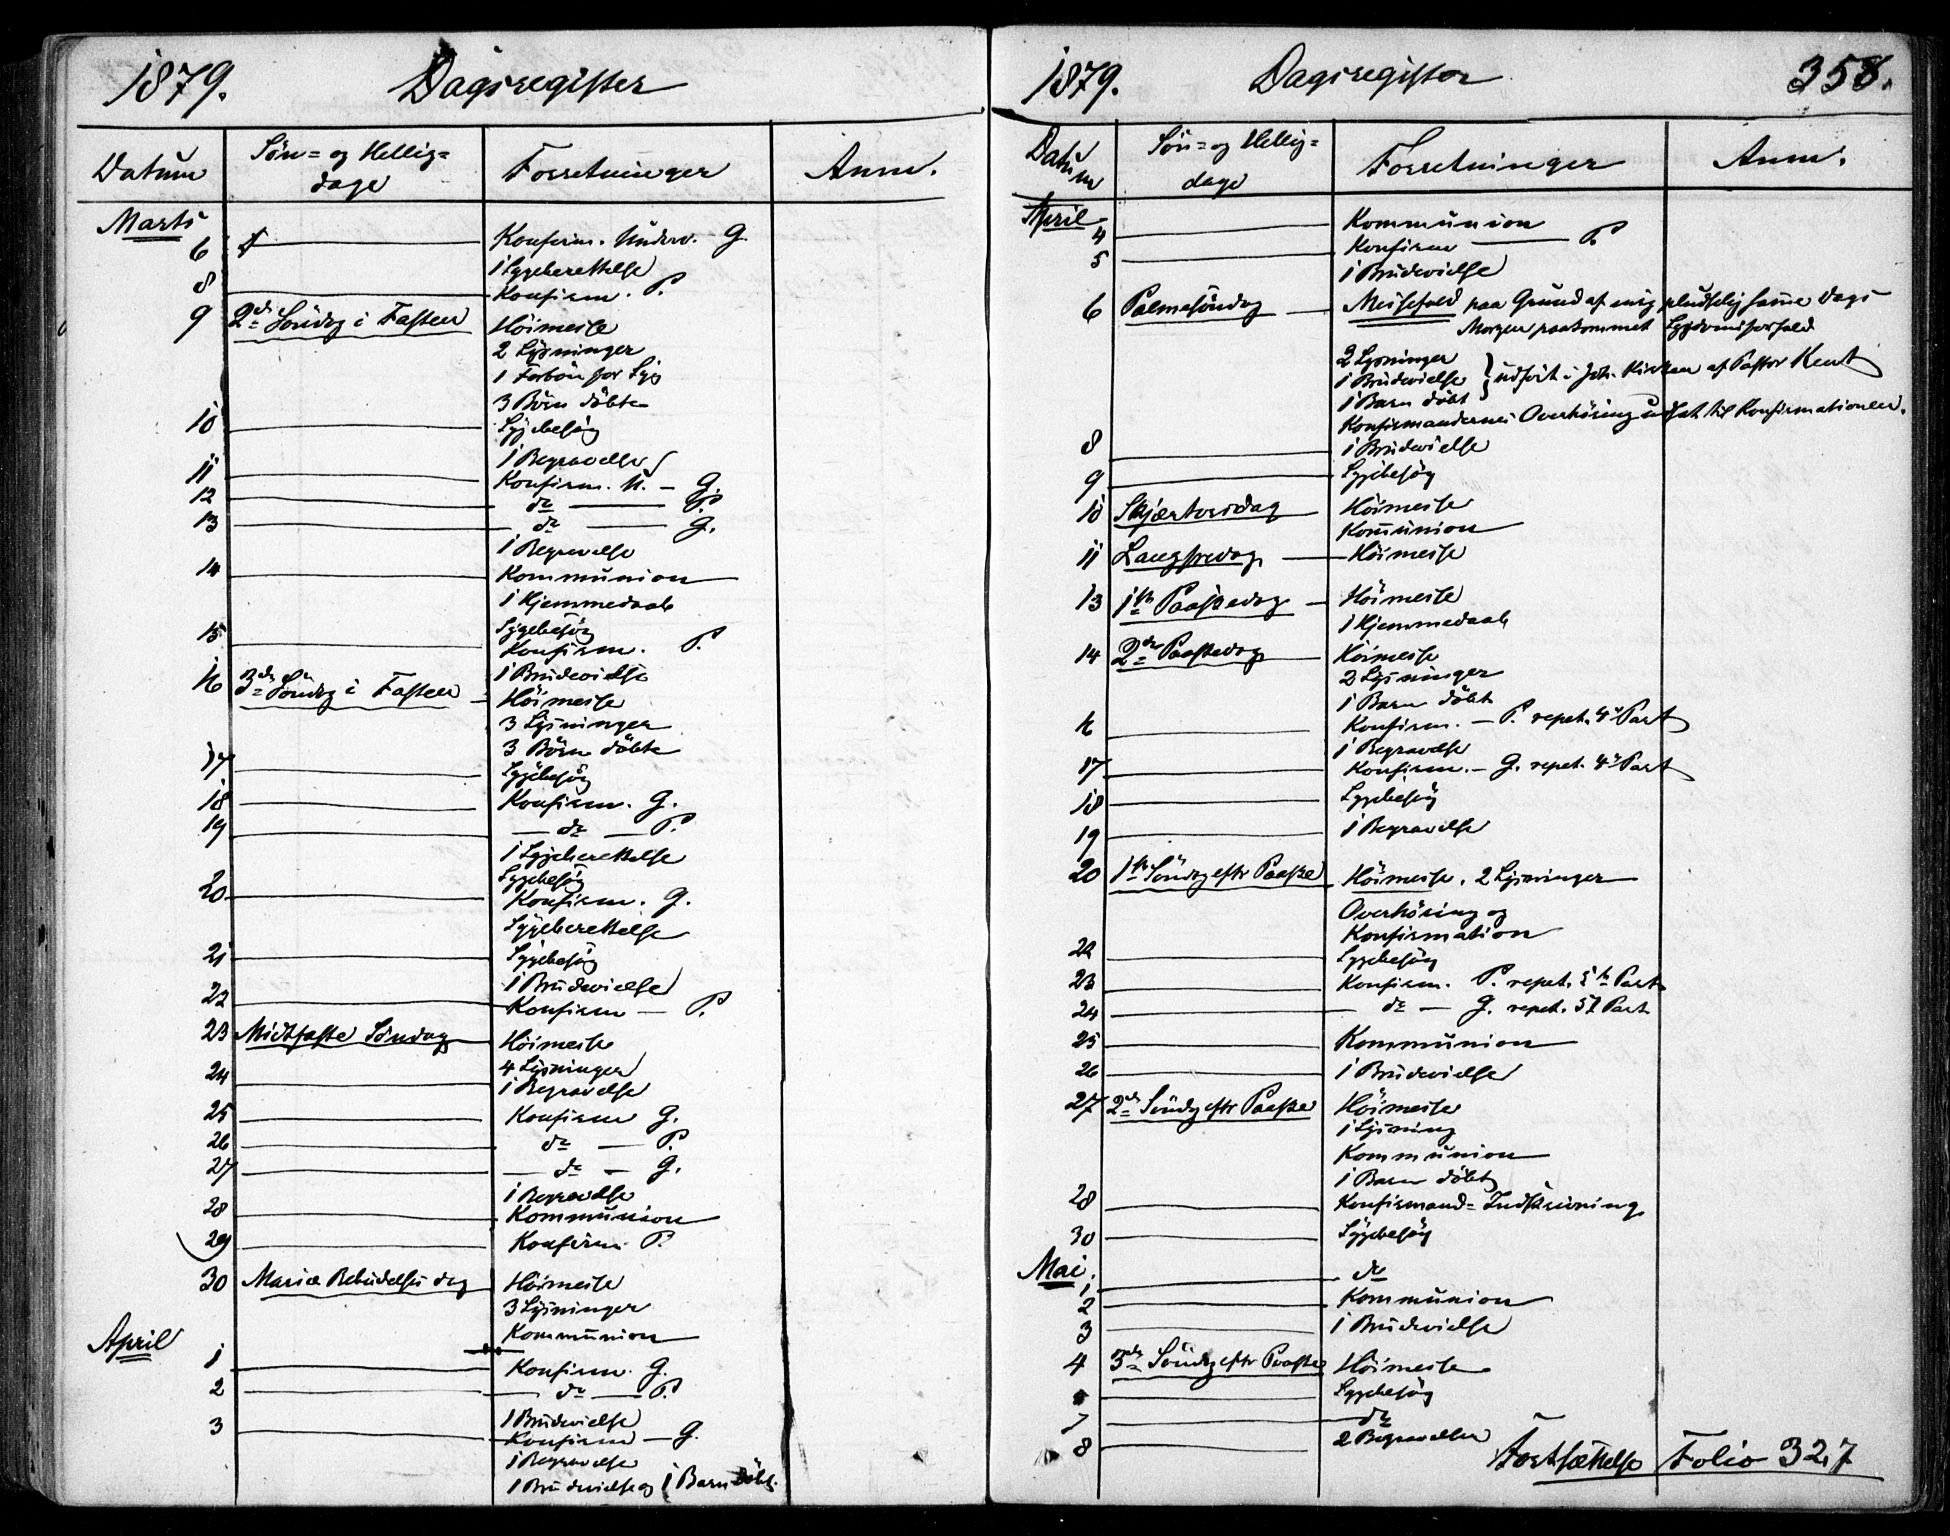 1879. Dagsregister
Datum Søn- og Hellig-dage Forretninger Anm.
Marts
6 Konfirm. Underv. G
1 Sygeberettelse
8 Konfirm. P.
9 2den Söndag i Fasten Höimesse
2 Lysninger
1 Forbön for Syg
3 Börn döbte
10 Sygebesög
1 Begravelse
11 Konfirm. U. — G.
12 do — P.
13 do — G.
1 Begravelse
14 Kommunion
1 Hjemmedaab
Sygebesög
15 Konfirm. P.
1 Brudevielse
16 3die Söndag i Fasten Höimesse
3 Lysninger
3 Börn döbte
17 Sygebesög
18 Konfirm. G.
19 — do — P.
1 Sygeberettelse
Sygebesög
20 Konfirm. G.
Sygeberettelse
21 Sygebesög
1 Brudevielse
22 Konfirm — P.
23 Midtfaste Söndag Höimesse
4 Lysninger
24 1 Begravelse
25 Konfirm G.
26 do — P.
27 — do — G.
1 Begravelse
28 Kommunion
29 Konfirm. P.
30 Mariæ Bebudelses dag Höimesse
3 Lysninger
Kommunion
April
1 Konfirm. G.
2 — do — P.
1 Brudevielse
3 Konfirm — G.
1 Begravelse
1 Brudevielse og 1 Barn döbt.
1879. Dagsregister 358.
Datum Søn- og Hellig-dage Forretninger Anm.
April
4 Kommunion
5 Konfirm — P.
1 Brudevielse
6 Palmesöndag — Messefald paa Grund af mig pludselig samme Dags
Morgen paakommet Sygdomsforfald
2 Lysninger
1 Brudevielse } udfört i Joh. Kirken af Pastor Kent
1 Barn döbt
Konfirmandernes Overhöring udsat til Konfirmationen.
8 1 Brudevielse
9 Sygebesög
10 Skjærtorsdag Höimesse
Kommunion
11 Langfredag — Höimesse
13 1ste Paaskedag — Höimesse
1 Hjemmedaab
14 2den Paaskedag Höimesse
2 Lysninger
1 Barn döbt
16 Konfirm. — P. repet. 4de Part
1 Begravelse
17 Konfirm. — G. repet. 4de Part
18 Sygebesög
19 1 Begravelse
20 1ste Söndag eftr Paaske Höimesse. 2 Lysninger
Overhöring og
Konfirmation
22 Sygebesög
23 Konfirm. P. repet. 5te Part
24 do — G. repet. 5te Part
25 Kommunion
26 1 Brudevielse
27 2den Söndag eftr Paaske Höimesse
1 Lysning
Kommunion
1 Barn döbt
28 Konfirmand-Indskrivning
30 Sygebesög
Mai.
1 do
2 Kommunion
3 1 Brudevielse
4 3die Söndag eftr Paaske Höimesse
Sygebesög
7 do
8 2 Begravelser
Fortsættelse Folio 327